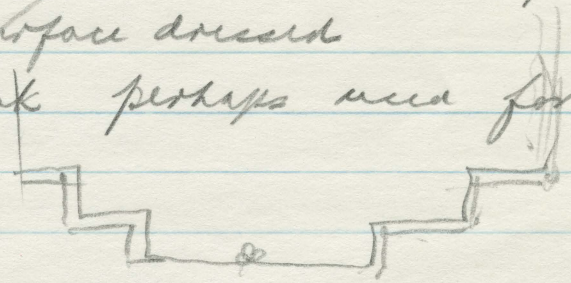 rface dressed
k perhaps used for